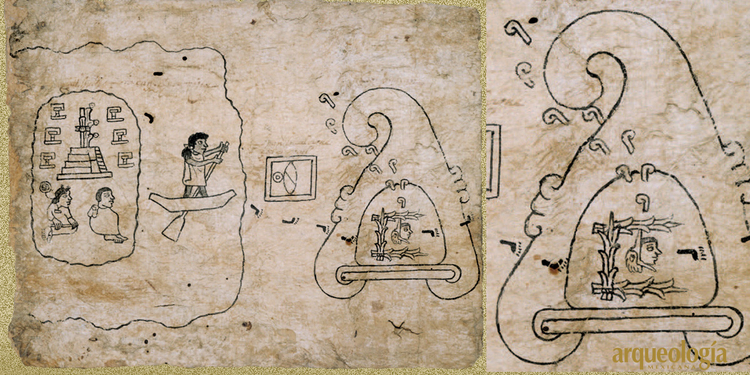 arqueología